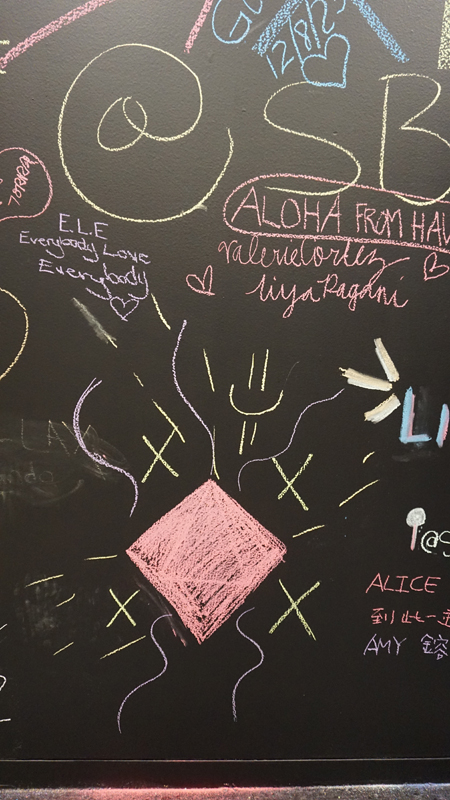 12/8/2
@SB
ALOHA FROM HAW
Valerie Cortez
liya Pagani
E.L.E
Everybody Love
Everybody
LI
@S
ALICE
到此一
AMY